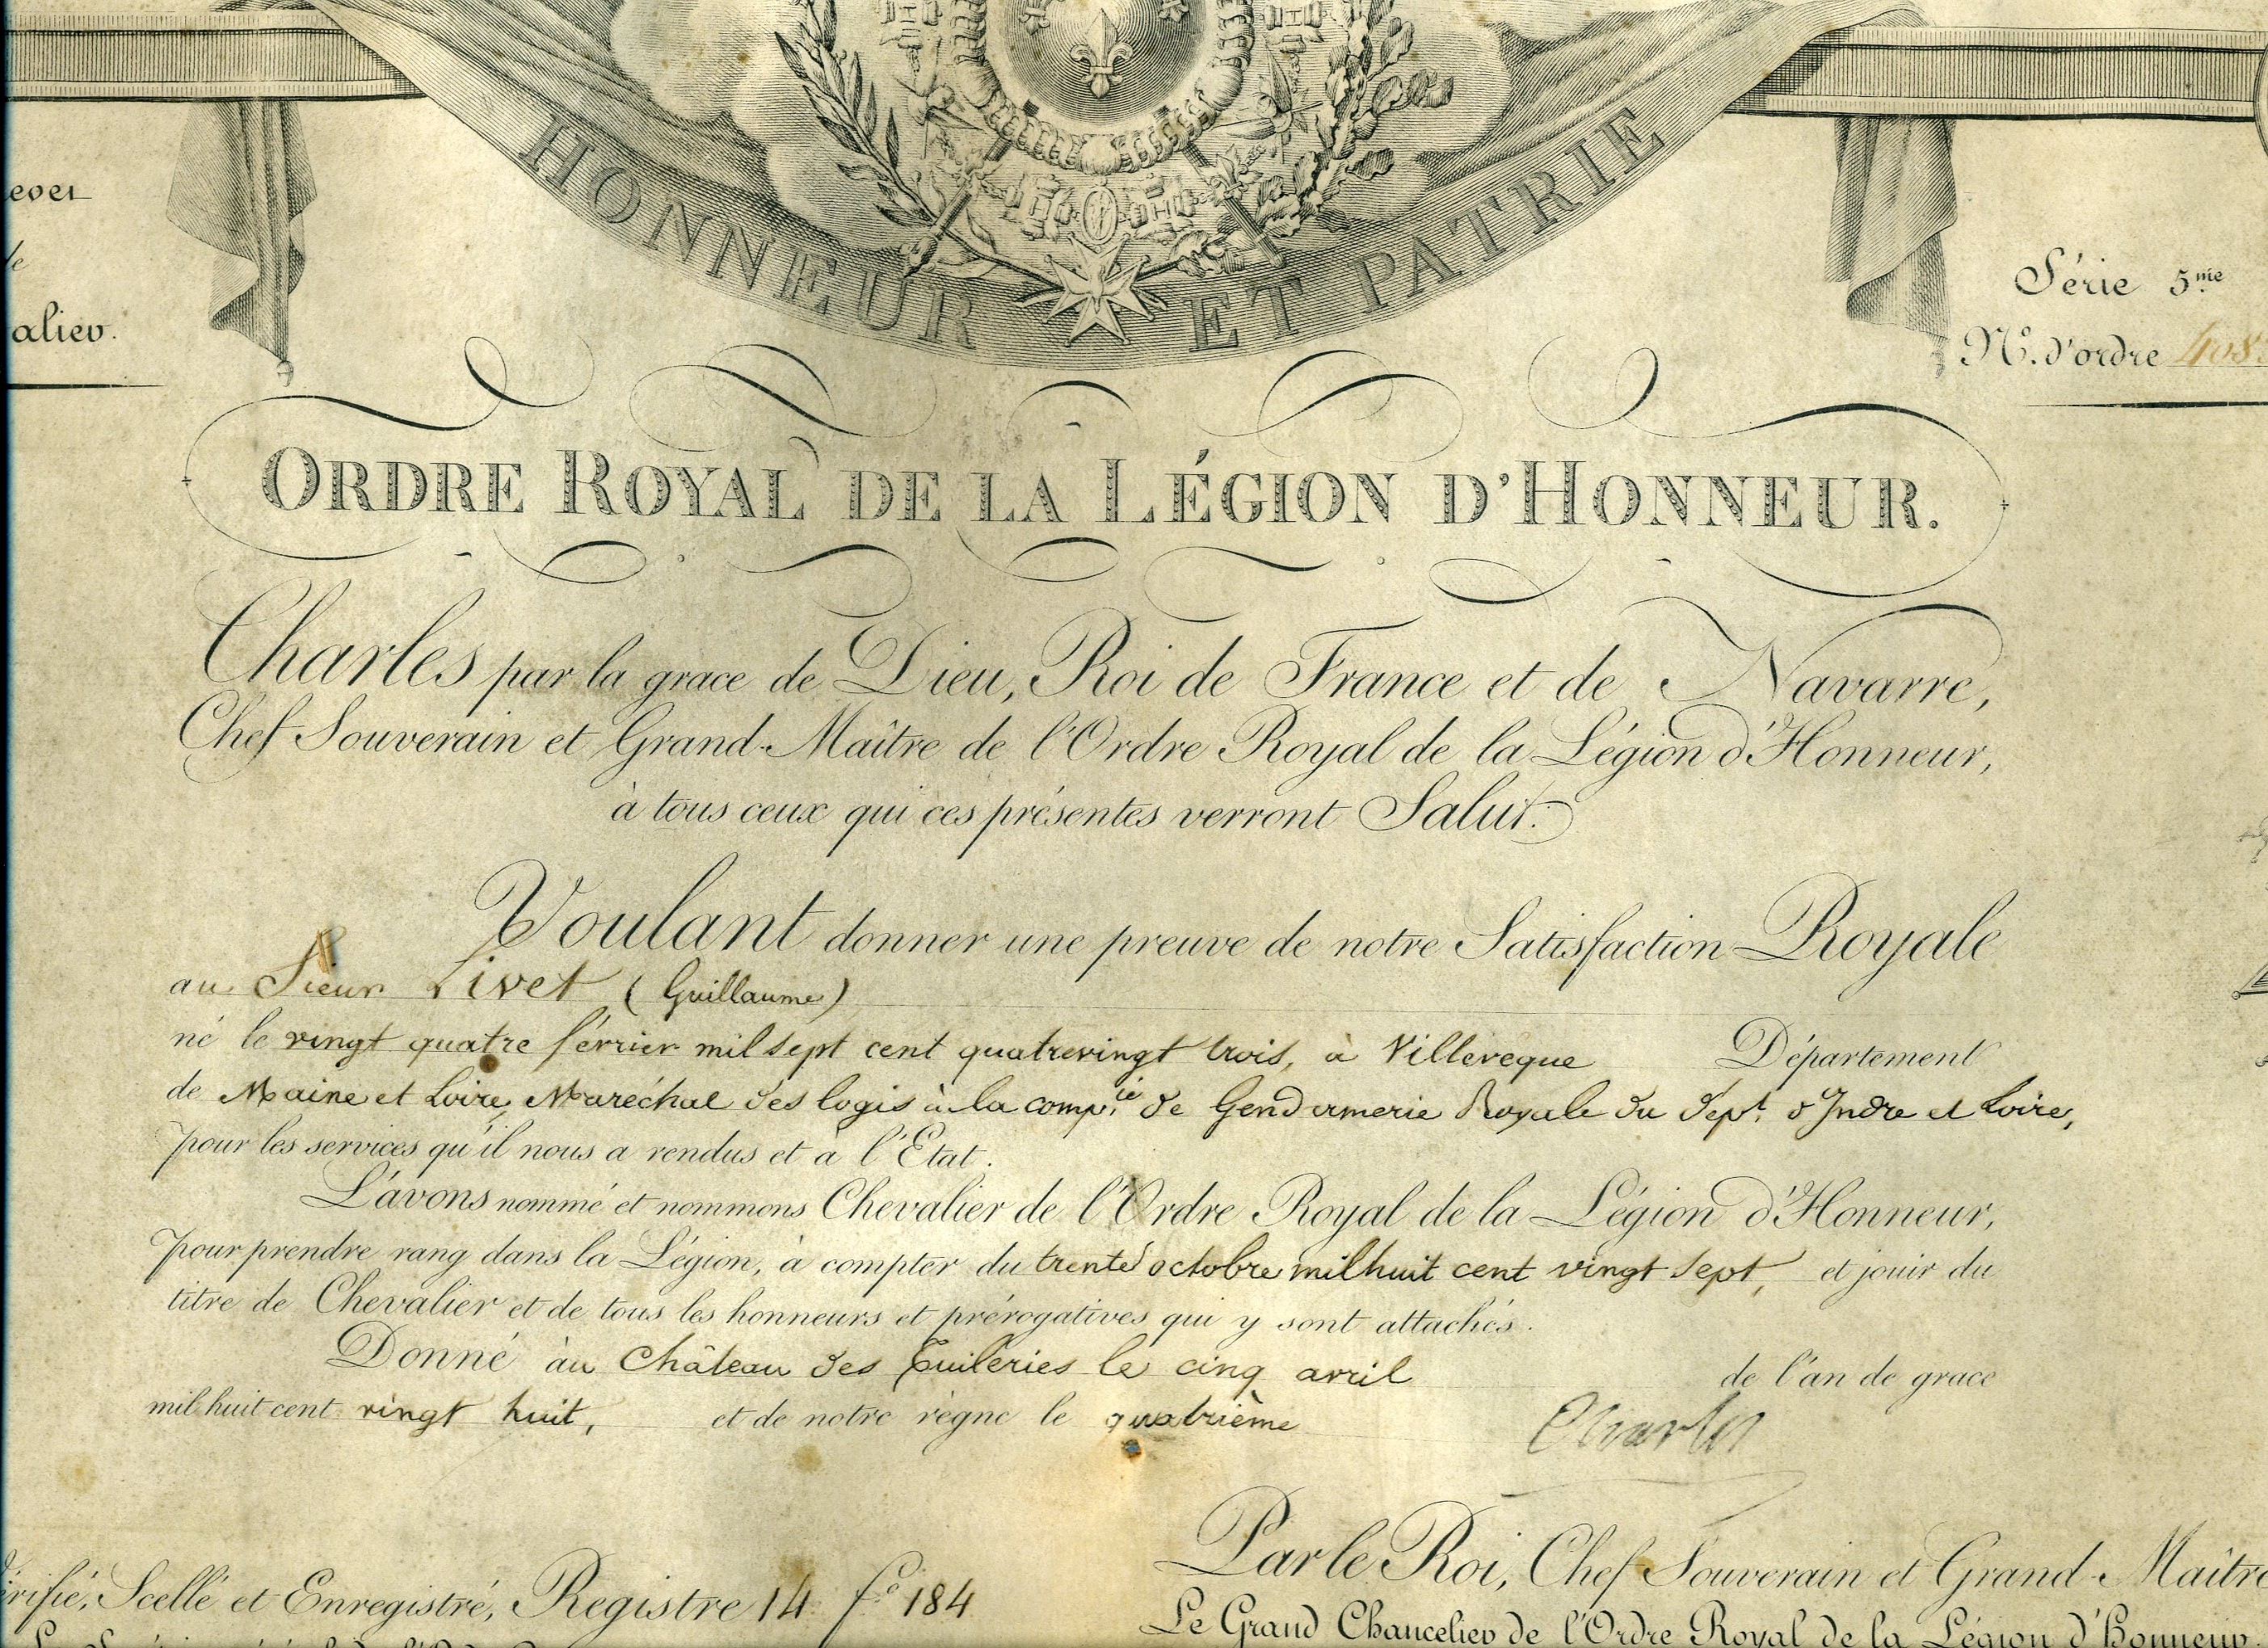 HONNEUR ET PATRIE
de
Série 5.me
N.o d'ordre
ORDRE ROYAL DE LA LÉGION D'HONNEUR.
Charles par la grace de Dieu, Roi de France et de Navarre,
Chef Souverain et Grand-Maître de l'Ordre Royal de la Légion d'Honneur,
à tous ceux qui ces présentes verront Salut.
Voulant donner une preuve de notre Satisfaction Royale
au Sieur Livet (Guillaume)
né le vingt quatre février mil sept cent quatrevingt trois, à Villeveque Département
de Maine et Loire, Maréchal des logis à la comp.ie de Gendarmerie Royale du dép.t d'Indre et Loire,
pour les services qu'il nous a rendus et à l'État.
L'avons nommé et nommons Chevalier de l'Ordre Royal de la Légion d'Honneur,
pour prendre rang dans la Légion, à compter du trente octobre mil huit cent vingt sept, et jouir du
titre de Chevalier et de tous les honneurs et prérogatives qui y sont attachés.
Donné au Château des Tuileries le cinq avril de l'an de grace
mil huit cent vingt huit, et de notre règne le quatrième
Charles
Par le Roi, Chef Souverain et Grand-Maître
érifié, Scellé et Enregistré, Registre 14 f.o 184
Le Grand Chancelier de l'Ordre Royal de la Légion d'Honneur